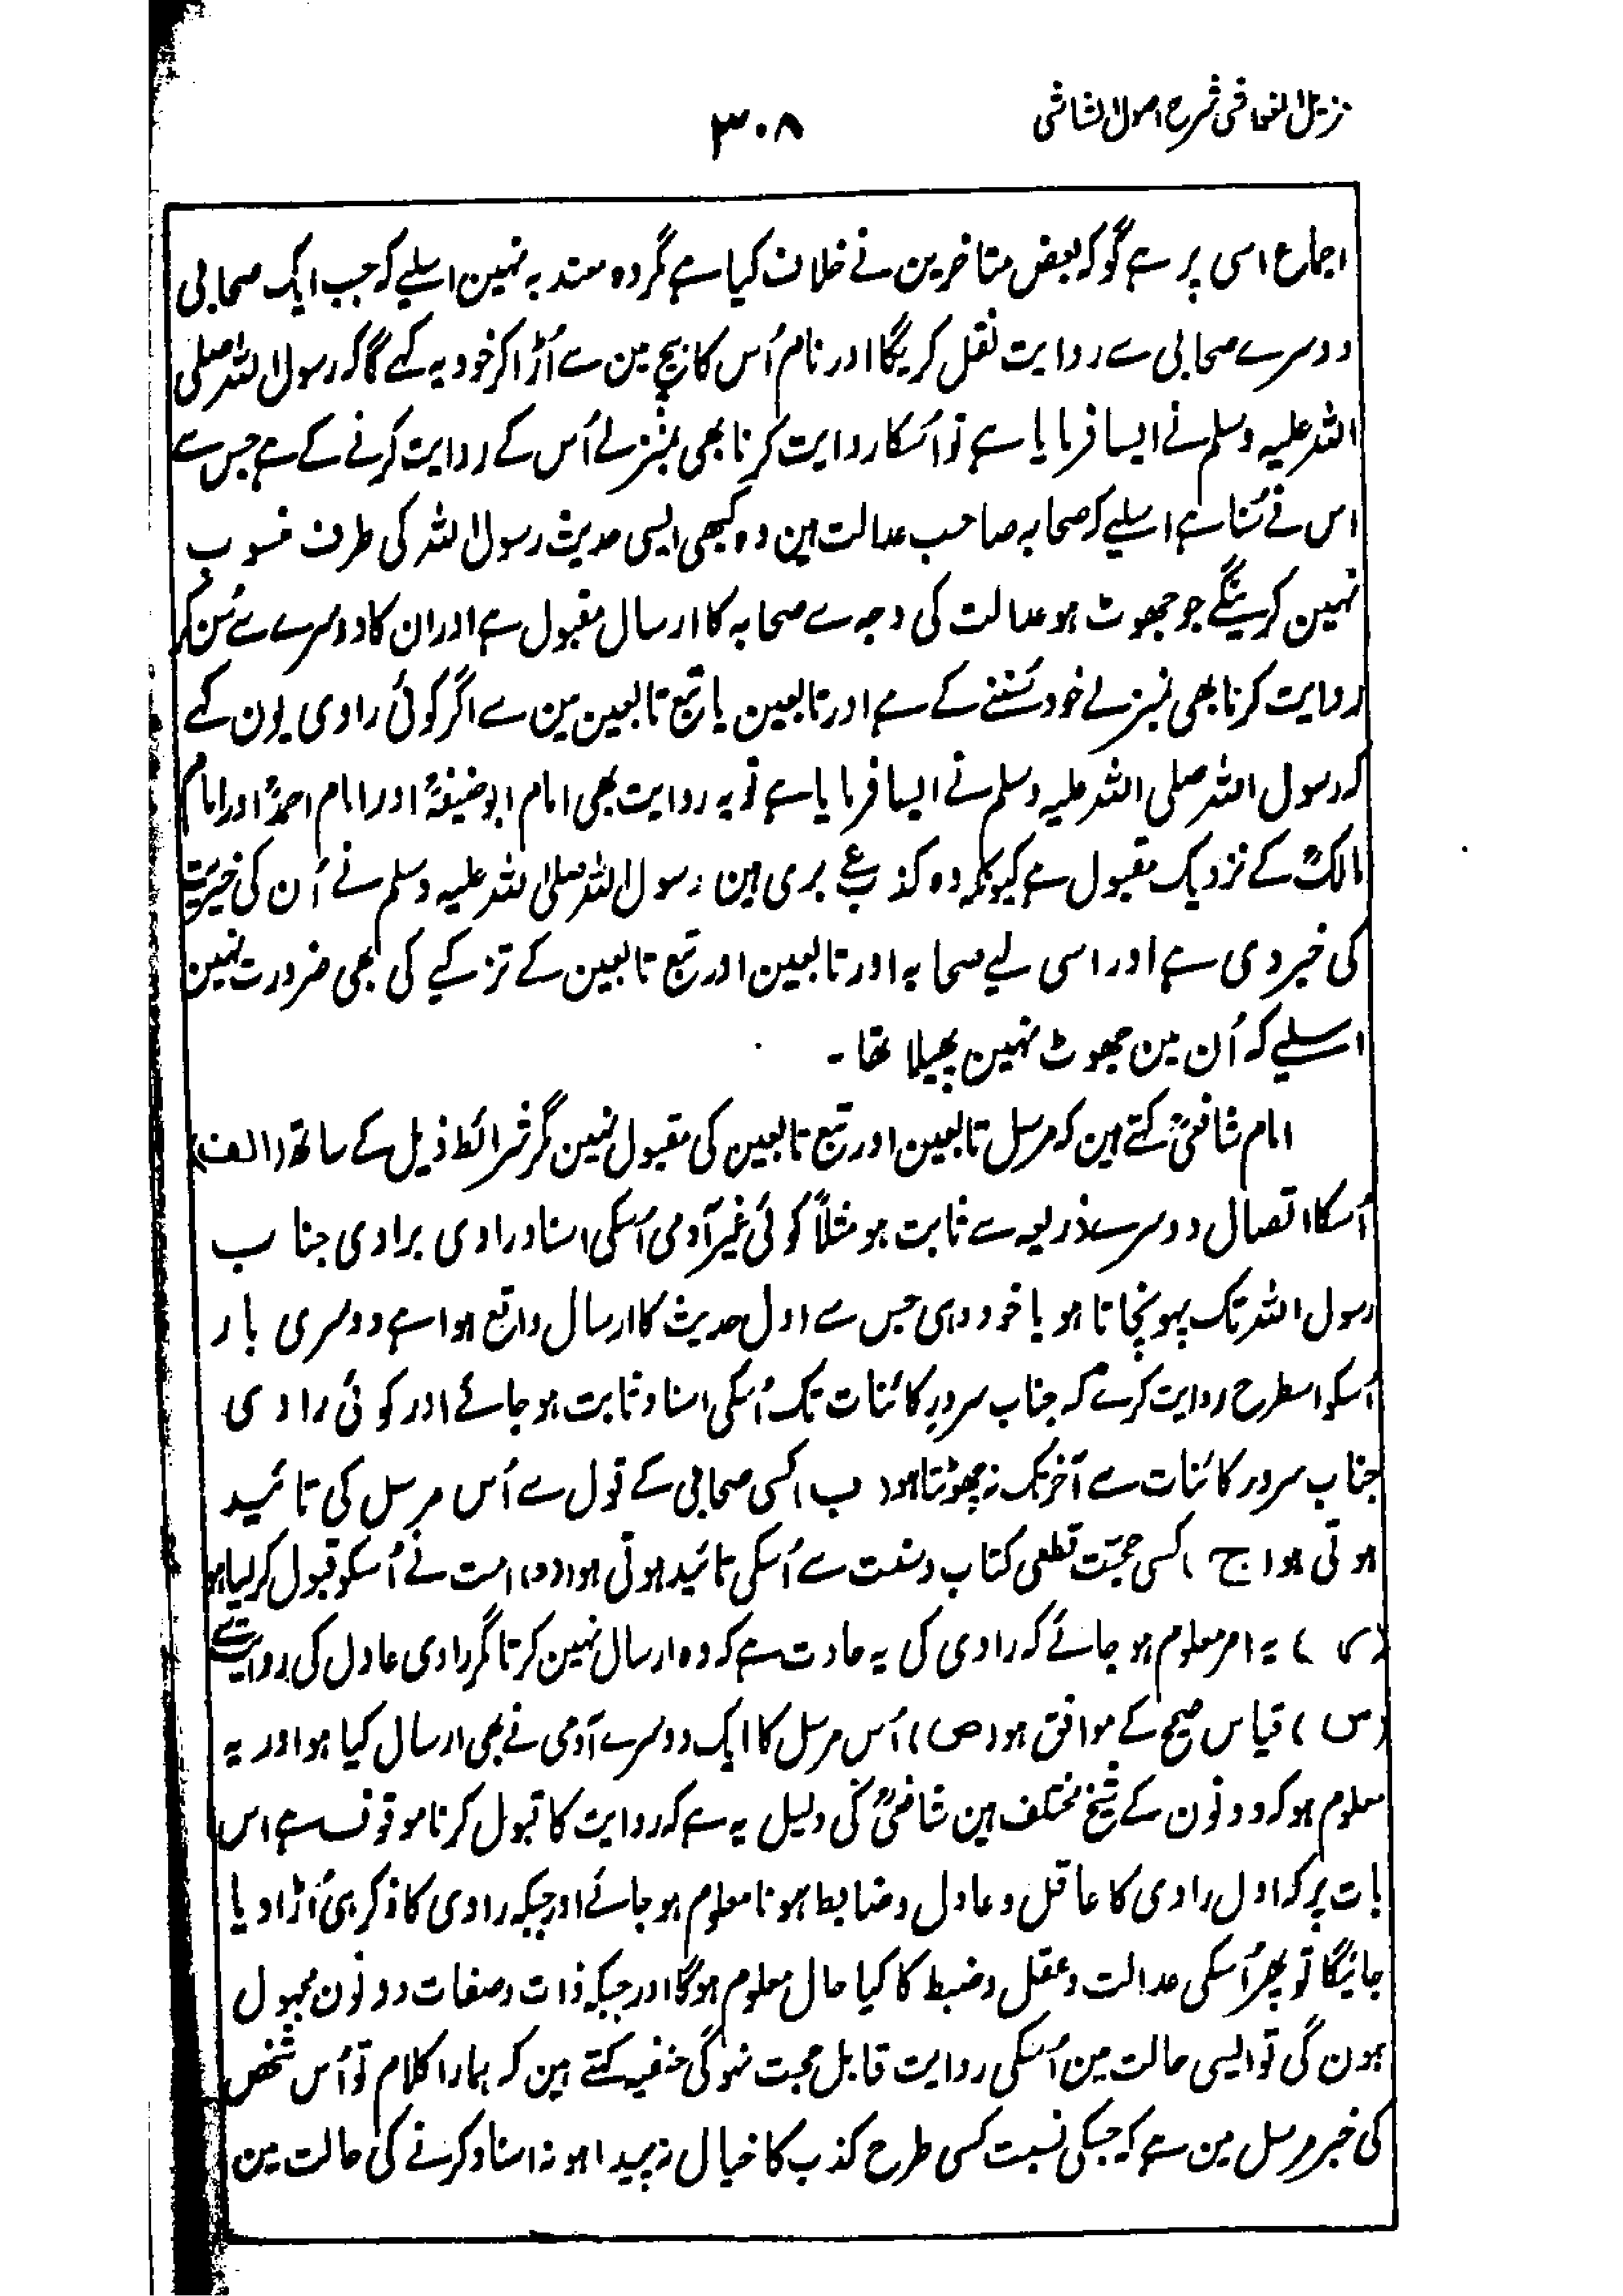 مزیل الغواشی شرح اصول الشاشی
۳۰۸
اجماع اسی پر ہے گو کہ بعض متاخرین نے خلاف کیا ہے مگر وہ معتد بہ نہین اسلیے کہ جب ایک صحابی
دوسرے صحابی سے روایت نقل کریگا اور نام اُس کا بیچ مین سے اُڑا کر خود یہ کہے گا کہ رسول اللہ صلی
اللہ علیہ وسلم نے ایسا فرمایا ہے تو اُسکا روایت کرنا بھی بمنزلے اُس کے روایت کرنے کے ہے جس سے
اس نے سُنا ہے اسلیے کہ صحابہ صاحب عدالت ہین وہ کبھی ایسی حدیث رسول اللہ کی طرف منسوب
نہین کرینگے جو جھوٹ ہو عدالت کی وجہ سے صحابہ کا ارسال مقبول ہے اور ان کا دوسرے سے سُن کر
روایت کرنا بھی بمنزلے خود سُننے کے ہے اور تابعین یا تبع تابعین مین سے اگر کوئی راوی یون کہے
کہ رسول اللہ صلی اللہ علیہ وسلم نے ایسا فرمایا ہے تو یہ روایت بھی امام ابو حنیفہؒ اور امام احمدؒ اور امام
مالکؒ کے نزدیک مقبول ہے کیونکہ وہ کذب سے بری ہین رسول اللہ صلی اللہ علیہ وسلم نے اُن کی خیریت
کی خبر دی ہے اور اسی لیے صحابہ اور تابعین اور تبع تابعین کے تزکیے کی بھی ضرورت نہین
اسلیے کہ اُن مین جھوٹ نہین پھیلا تھا ۔
امام شافعیؒ کہتے ہین کہ مرسل تابعین اور تبع تابعین کی مقبول نہین مگر شرائط ذیل کے ساتھ (الف)
اُسکا اتصال دوسرے ذریعہ سے ثابت ہو مثلاً کوئی غیر آدمی اُسکی اسناد راوی براوی جناب
رسول اللہ تک پہونچاتا ہو یا خود وہی جس سے اول حدیث کا ارسال واقع ہوا ہے دوسری بار
اُسکو اسطرح روایت کرے کہ جناب سرورِ کائنات تک اُسکی اسناد ثابت ہو جائے اور کوئی راوی
جناب سرور کائنات سے آخر تک نہ چھوٹتا ہو (ب) کسی صحابی کے قول سے اُس مرسل کی تائید
ہوتی ہو (ج) کسی حجّت قطعی کتاب و سنت سے اُسکی تائید ہوتی ہو (د) امت نے اُسکو قبول کر لیا ہو
(ر) یہ امر معلوم ہو جائے کہ راوی کی یہ عادت ہے کہ وہ ارسال نہین کرتا مگر راوی عادل کی روایت سے
(س) قیاس صحیح کے موافق ہو (ص) اُس مرسل کا ایک دوسرے آدمی نے بھی ارسال کیا ہو اور یہ
معلوم ہو کہ دونون کے شیخ مختلف ہین شافعیؒ کی دلیل یہ ہے کہ روایت کا قبول کرنا موقوف ہے اس
بات پر کہ اول راوی کا عاقل و عادل و ضابط ہونا معلوم ہو جائے اور جبکہ راوی کا ذکر ہی اُڑا دیا
جائیگا تو پھر اُسکی عدالت و عقل و ضبط کا کیا حال معلوم ہوگا اور جبکہ ذات و صفات دونون مجہول
ہون گی تو ایسی حالت مین اُسکی روایت قابل حجت نہوگی حنفیہ کہتے ہین کہ ہمارا کلام تو اُس شخص
کی خبر مرسل مین ہے کہ جسکی نسبت کسی طرح کذب کا خیال نہ پیدا ہو نہ اسناد کرنے کی حالت مین